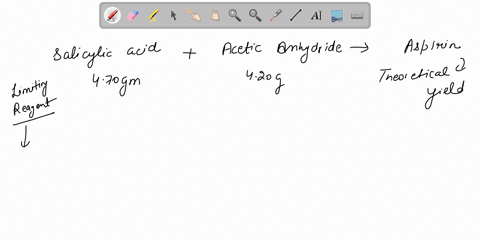 Salicylic acid + Acetic Anhydride → Aspirin
4.70gm 4.20g Theoretical yield
Limiting Reagent